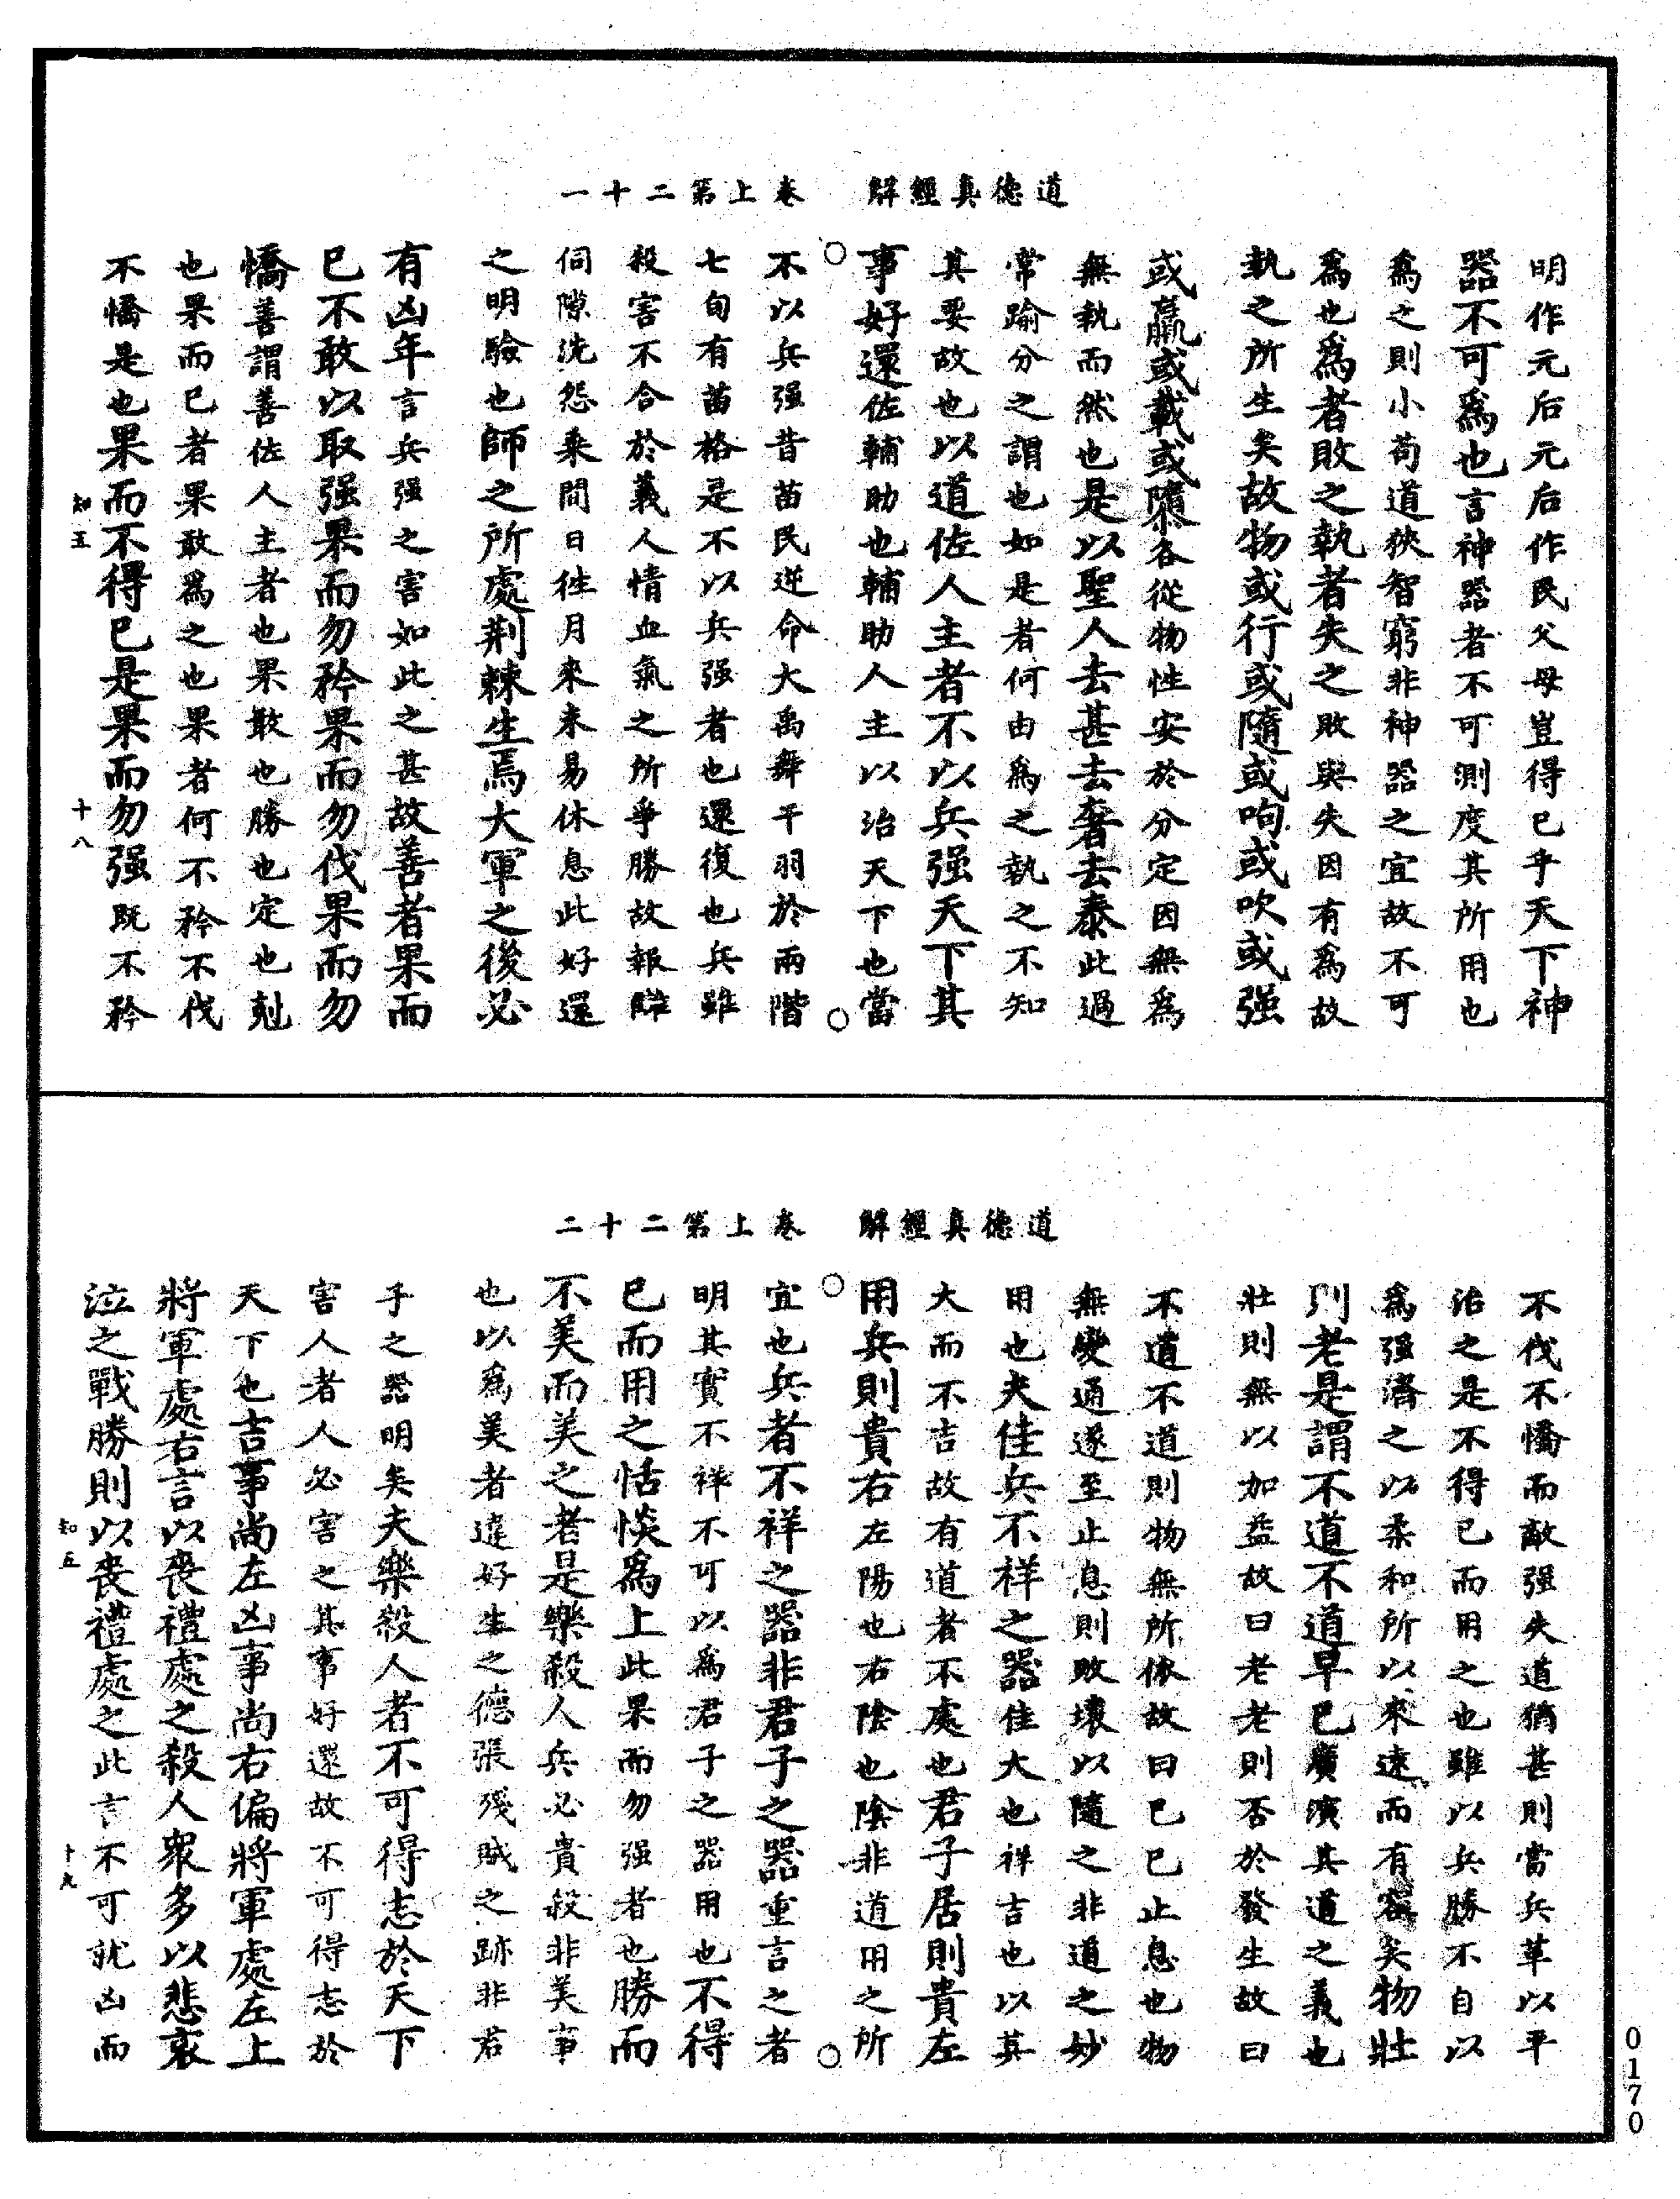 道德真經解　卷上第二十一
明作元后元后作民父母豈得已乎天下神
器不可爲也言神器者不可測度其所用也
爲之則小苟道狹智窮非神器之宜故不可
爲也爲者敗之執者失之敗與失因有爲故
執之所生矣故物或行或隨或呴或吹或强
或羸或載或隳各從物性安於分定因無爲
無執而然也是以聖人去甚去奢去泰此過
常踰分之謂也如是者何由爲之執之不知
其要故也以道佐人主者不以兵强天下其
事好還佐輔助也輔助人主以治天下也當
不以兵强昔苗民逆命大禹舞干羽於兩階
七旬有苗格是不以兵强者也還復也兵雖
殺害不合於義人情血氣之所爭勝故報讎
伺隙洗怨乘間日往月來未易休息此好還
之明驗也師之所處荆棘生焉大軍之後必
有凶年言兵强之害如此之甚故善者果而
已不敢以取强果而勿矜果而勿伐果而勿
憍善謂善佐人主者也果敢也勝也定也剋
也果而已者果敢爲之也果者何不矜不伐
不憍是也果而不得已是果而勿强既不矜
知五　十八
道德真經解　卷上第二十二
不伐不憍而敵强失道猶甚則當兵革以平
治之是不得已而用之也雖以兵勝不自以
爲强濟之以柔和所以來遠而有容矣物壯
則老是謂不道不道早已廣演其道之義也
壯則無以加益故曰老老則否於發生故曰
不道不道則物無所依故曰已已止息也物
無變通遂至止息則敗壞以隨之非道之妙
用也夫佳兵不祥之器佳大也祥吉也以其
大而不吉故有道者不處也君子居則貴左
用兵則貴右左陽也右陰也陰非道用之所
宜也兵者不祥之器非君子之器重言之者
明其實不祥不可以爲君子之器用也不得
已而用之恬惔爲上此果而勿强者也勝而
不美而美之者是樂殺人兵必貴殺非美事
也以爲美者違好生之德張殘賊之跡非君
子之器明矣夫樂殺人者不可得志於天下
害人者人必害之其事好還故不可得志於
天下也吉事尚左凶事尚右偏將軍處左上
將軍處右言以喪禮處之殺人衆多以悲哀
泣之戰勝則以喪禮處之此言不可就凶而
知五　十九
0170